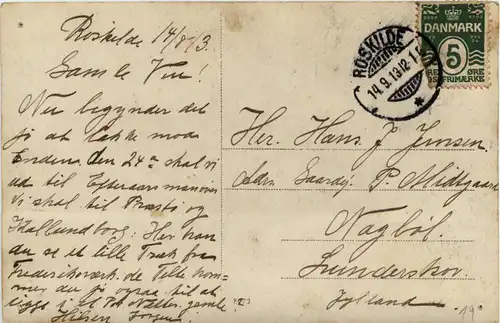 Roskilde 14/9 13.
Gamle Ven!
Nu begynder det
jo at lakke mod
Enden. Den 24de skal vi
ud til Efteraarsmanøvre
Vi skal til Præstø og
Kallundborg. Her kan
du se et lille Træk fra
Frederiksværk. de Telte kom-
mer du jo ogsaa til at
ligge i et Par Nætter, gamle.
Hilsen Jørgen
ROSKILDE
14.9.13
DANMARK
5
ØRE ØRE
FRIMÆRKE
Her. Hans J. Jensen.
Adr. Gaardej. P. Midtgaard
Nagbøl.
Lunderskov.
Jylland